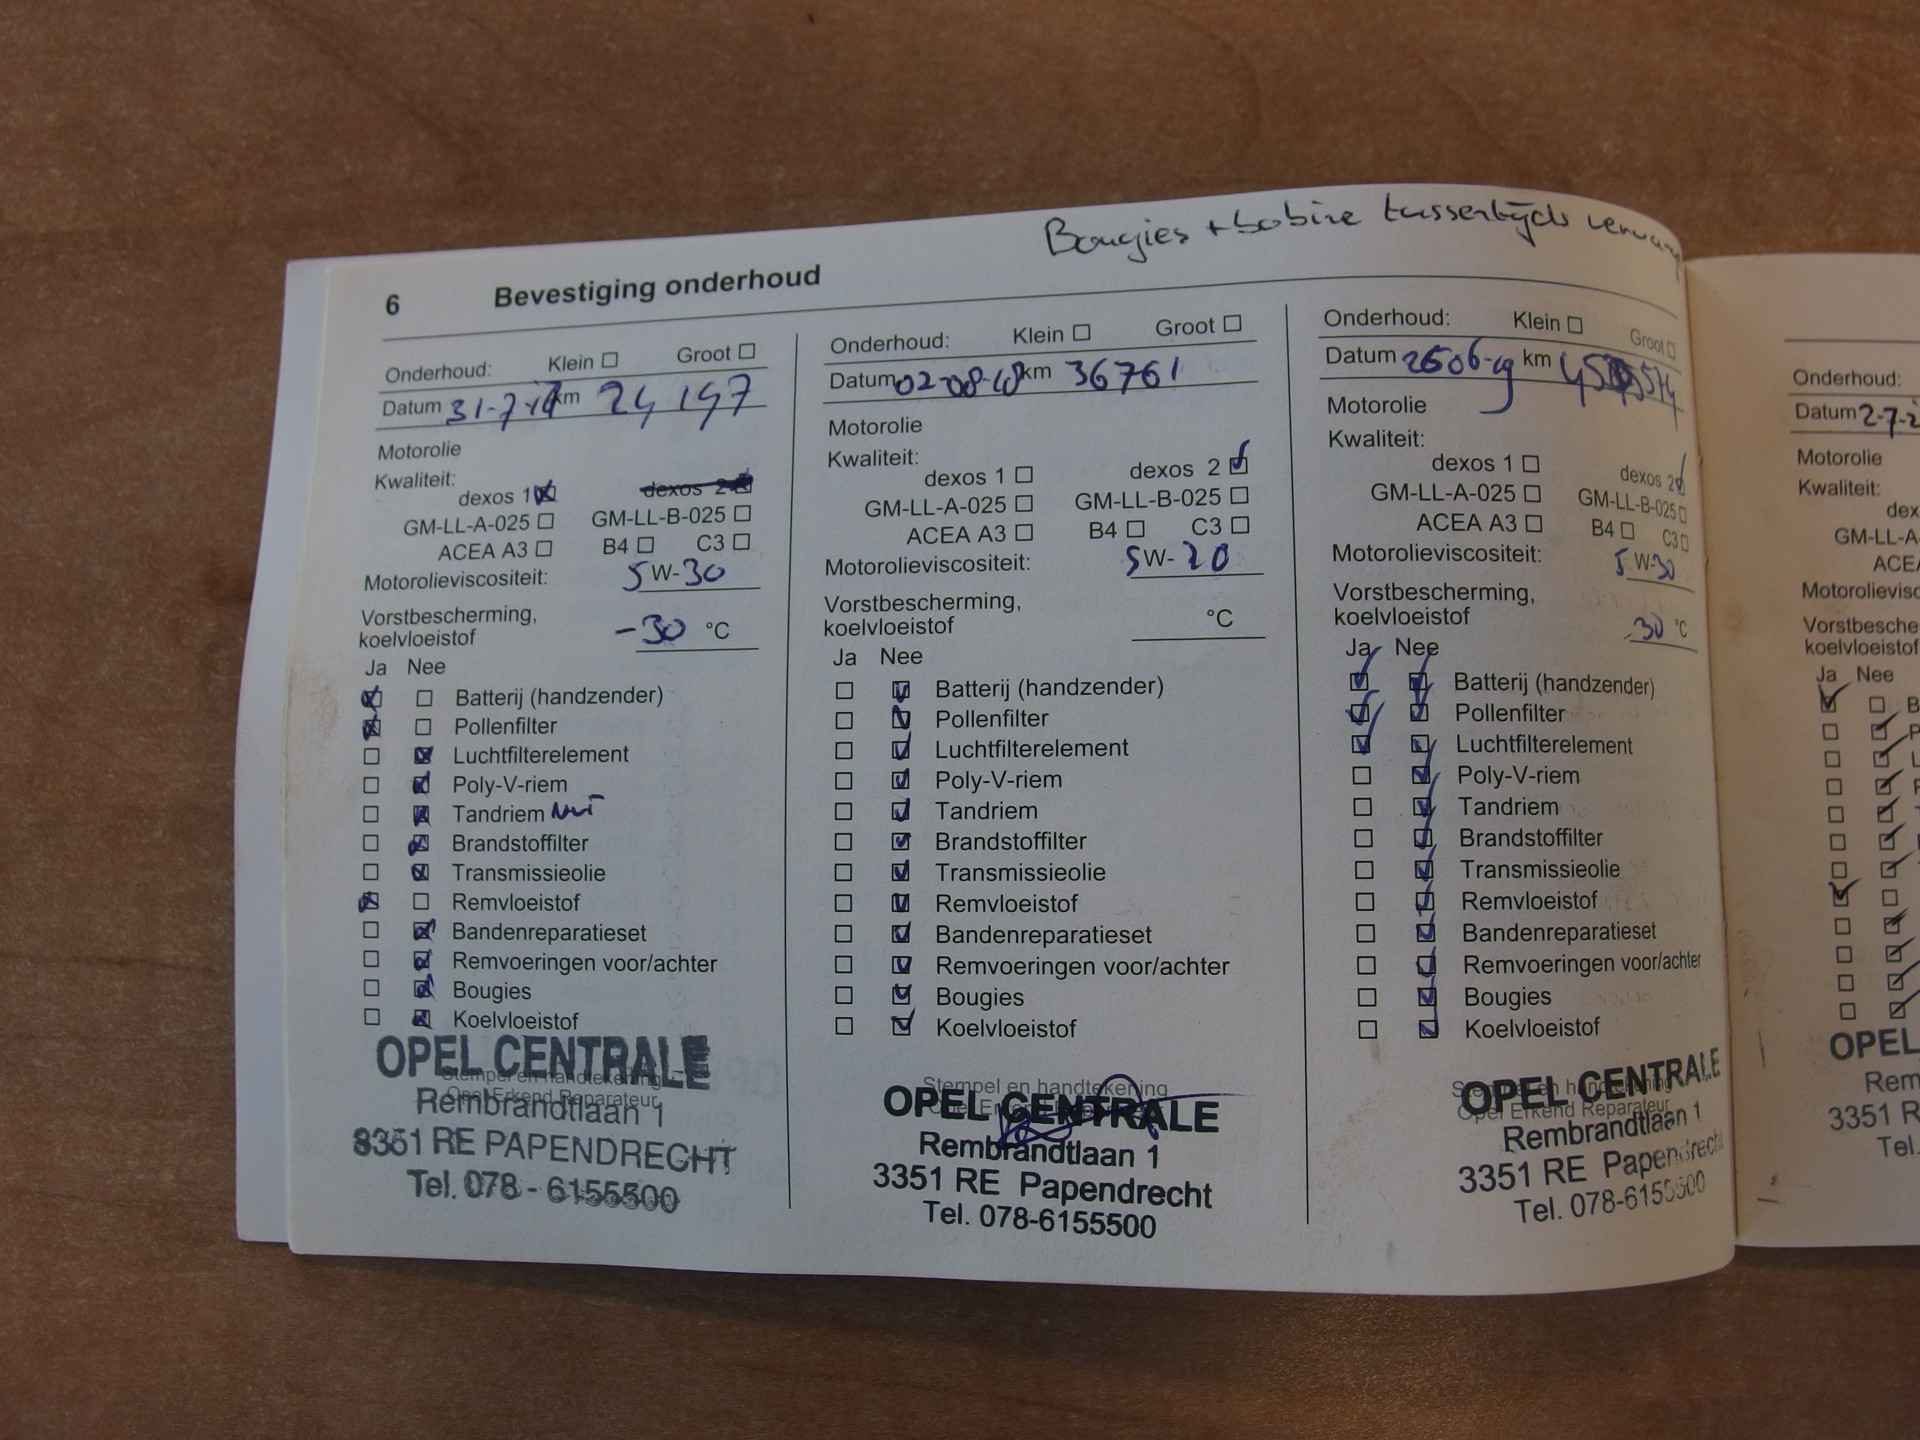 Bougies + bobine tussentijds
6 Bevestiging onderhoud
Onderhoud: Klein Groot
Datum 31-7-17 km 24 147
Motorolie
Kwaliteit:
dexos 1 dexos 2
GM-LL-A-025 GM-LL-B-025
ACEA A3 B4 C3
Motorolieviscositeit: 5 W-30
Vorstbescherming,
koelvloeistof -30 °C
Ja Nee
Batterij (handzender)
Pollenfilter
Luchtfilterelement
Poly-V-riem
Tandriem
Brandstoffilter
Transmissieolie
Remvloeistof
Bandenreparatieset
Remvoeringen voor/achter
Bougies
Koelvloeistof
Stempel en handtekening
Opel Erkend Reparateur
OPEL CENTRALE
Rembrandtlaan 1
3351 RE PAPENDRECHT
Tel. 078 - 6155500
Onderhoud: Klein Groot
Datum 02-08-18 km 36761
Motorolie
Kwaliteit:
dexos 1 dexos 2
GM-LL-A-025 GM-LL-B-025
ACEA A3 B4 C3
Motorolieviscositeit: 5 W- 20
Vorstbescherming,
koelvloeistof °C
Ja Nee
Batterij (handzender)
Pollenfilter
Luchtfilterelement
Poly-V-riem
Tandriem
Brandstoffilter
Transmissieolie
Remvloeistof
Bandenreparatieset
Remvoeringen voor/achter
Bougies
Koelvloeistof
Stempel en handtekening
OPEL CENTRALE
Rembrandtlaan 1
3351 RE Papendrecht
Tel. 078-6155500
Onderhoud: Klein Groot
Datum 2506-19 km
Motorolie
Kwaliteit:
dexos 1 dexos 2
GM-LL-A-025 GM-LL-B-025
ACEA A3 B4 C3
Motorolieviscositeit: 5 W-30
Vorstbescherming,
koelvloeistof -30 °C
Ja Nee
Batterij (handzender)
Pollenfilter
Luchtfilterelement
Poly-V-riem
Tandriem
Brandstoffilter
Transmissieolie
Remvloeistof
Bandenreparatieset
Remvoeringen voor/achter
Bougies
Koelvloeistof
Stempel en handtekening
Opel Erkend Reparateur
OPEL CENTRALE
Rembrandtlaan 1
3351 RE Papendrecht
Tel. 078-6155500
Onderhoud:
Datum 2-7-2
Motorolie
Kwaliteit:
dex
GM-LL-A
ACEA
Motorolievisc
Vorstbesche
koelvloeistof
Ja Nee
OPEL
Rem
3351 R
Tel.